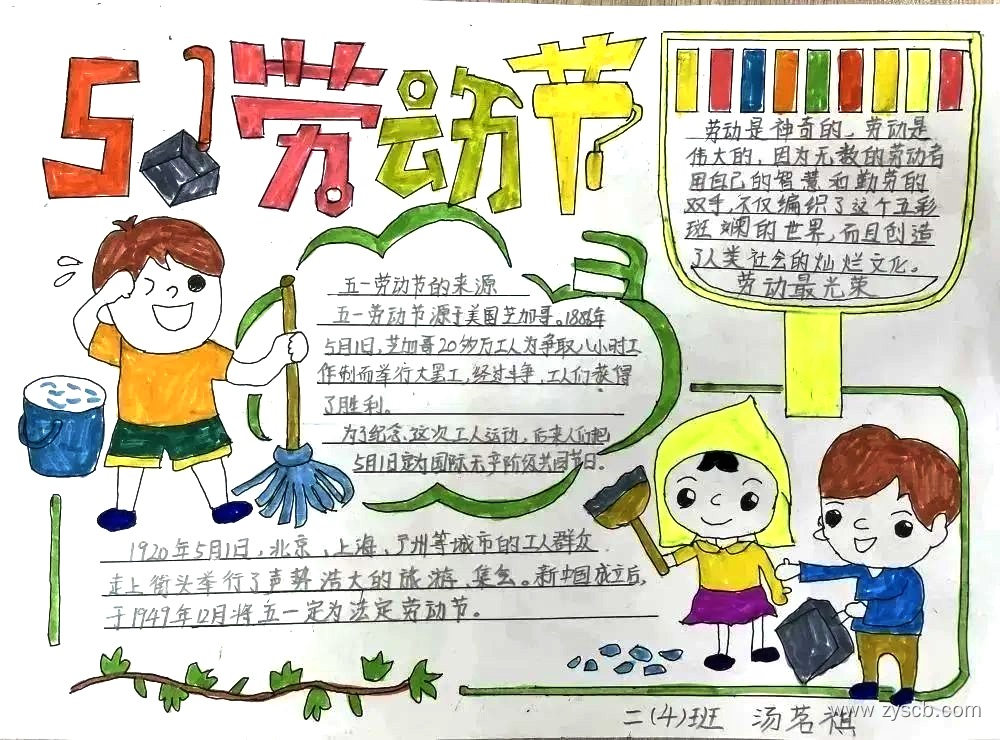 5.1劳动节
劳动是神奇的，劳动是
伟大的，因为无数的劳动者
用自己的智慧和勤劳的
双手，不仅编织了这个五彩
斑斓的世界，而且创造
了人类社会的灿烂文化。
劳动最光荣
五一劳动节的来源
五一劳动节源于美国芝加哥。1886年
5月1日，芝加哥20多万工人为争取八小时工
作制而举行大罢工，经过斗争，工人们获得
了胜利。
为了纪念这次工人运动，后来人们把
5月1日定为国际无产阶级共同节日。
1920年5月1日，北京、上海、广州等城市的工人群众
走上街头举行了声势浩大的旅游、集会。新中国成立后，
于1949年12月将五一定为法定劳动节。
二(4)班 汤茗祺
www.zyscb.com